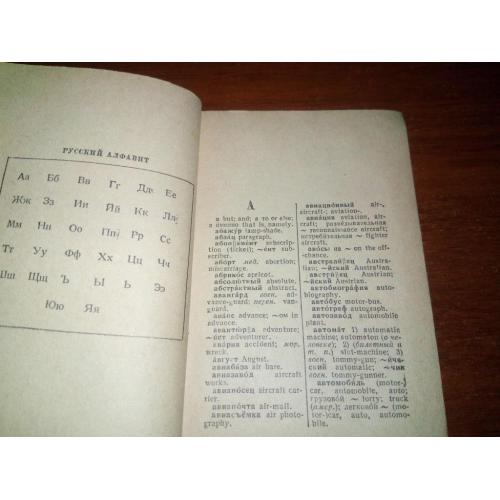 РУССКИЙ АЛФАВИТ
Аа Бб Вв Гг Дд Ее
Жж Зз Ии Йй Кк Лл
Мм Нн Оо Пп Рр Сс
Тт Уу Фф Хх Цц Чч
Шш Щщ Ъ Ы Ь Ээ
Юю Яя
А
а but; and; а то or else;
а именно that is, namely.
абажу́р lamp-shade.
абза́ц paragraph.
абон||еме́нт subscription
(ticket); ~е́нт sub-
scriber.
або́рт мед. abortion;
miscarriage.
абрико́с apricot.
абсолю́тный absolute.
абстра́ктный abstract.
аванга́рд воен. advance-guard; перен. van-
guard.
ава́нс advance; ~ом in
advance.
авантю́р||а adventure;
~и́ст adventurer.
ава́рия accident; мор.
wreck.
а́вгуст August.
авиаба́за air base.
авиазаво́д aircraft works.
авиано́сец aircraft car-
rier.
авиапо́чта air-mail.
авиасъёмка air photo-
graphy.
авиацио́нный air-,
aircraft-; aviation-.
авиа́ция aviation, air,
aircraft; разве́дывательная
~ reconnaissance aircraft;
истреби́тельная ~ fighter
aircraft.
аво́сь: на ~ on the off-
chance.
австрали́||ец Austra-
lian; ~йский Australian.
австри́||ец Austrian;
~йский Austrian.
автобиогра́фия auto-
biography.
авто́бус motor-bus.
авто́граф autograph.
автозаво́д automobile
plant.
автома́т 1) automatic
machine; automaton (о че-
ловеке); 2) (билетный и
т. п.) slot-machine; 3)
воен. tommy-gun; ~и́че-
ский automatic; ~чик
воен. tommy-gunner.
автомоби́ль (motor-)
car, automobile, auto;
грузово́й ~ lorry; truck
(амер.); легково́й ~ (mo-
tor-)car, auto, automo-
bile.